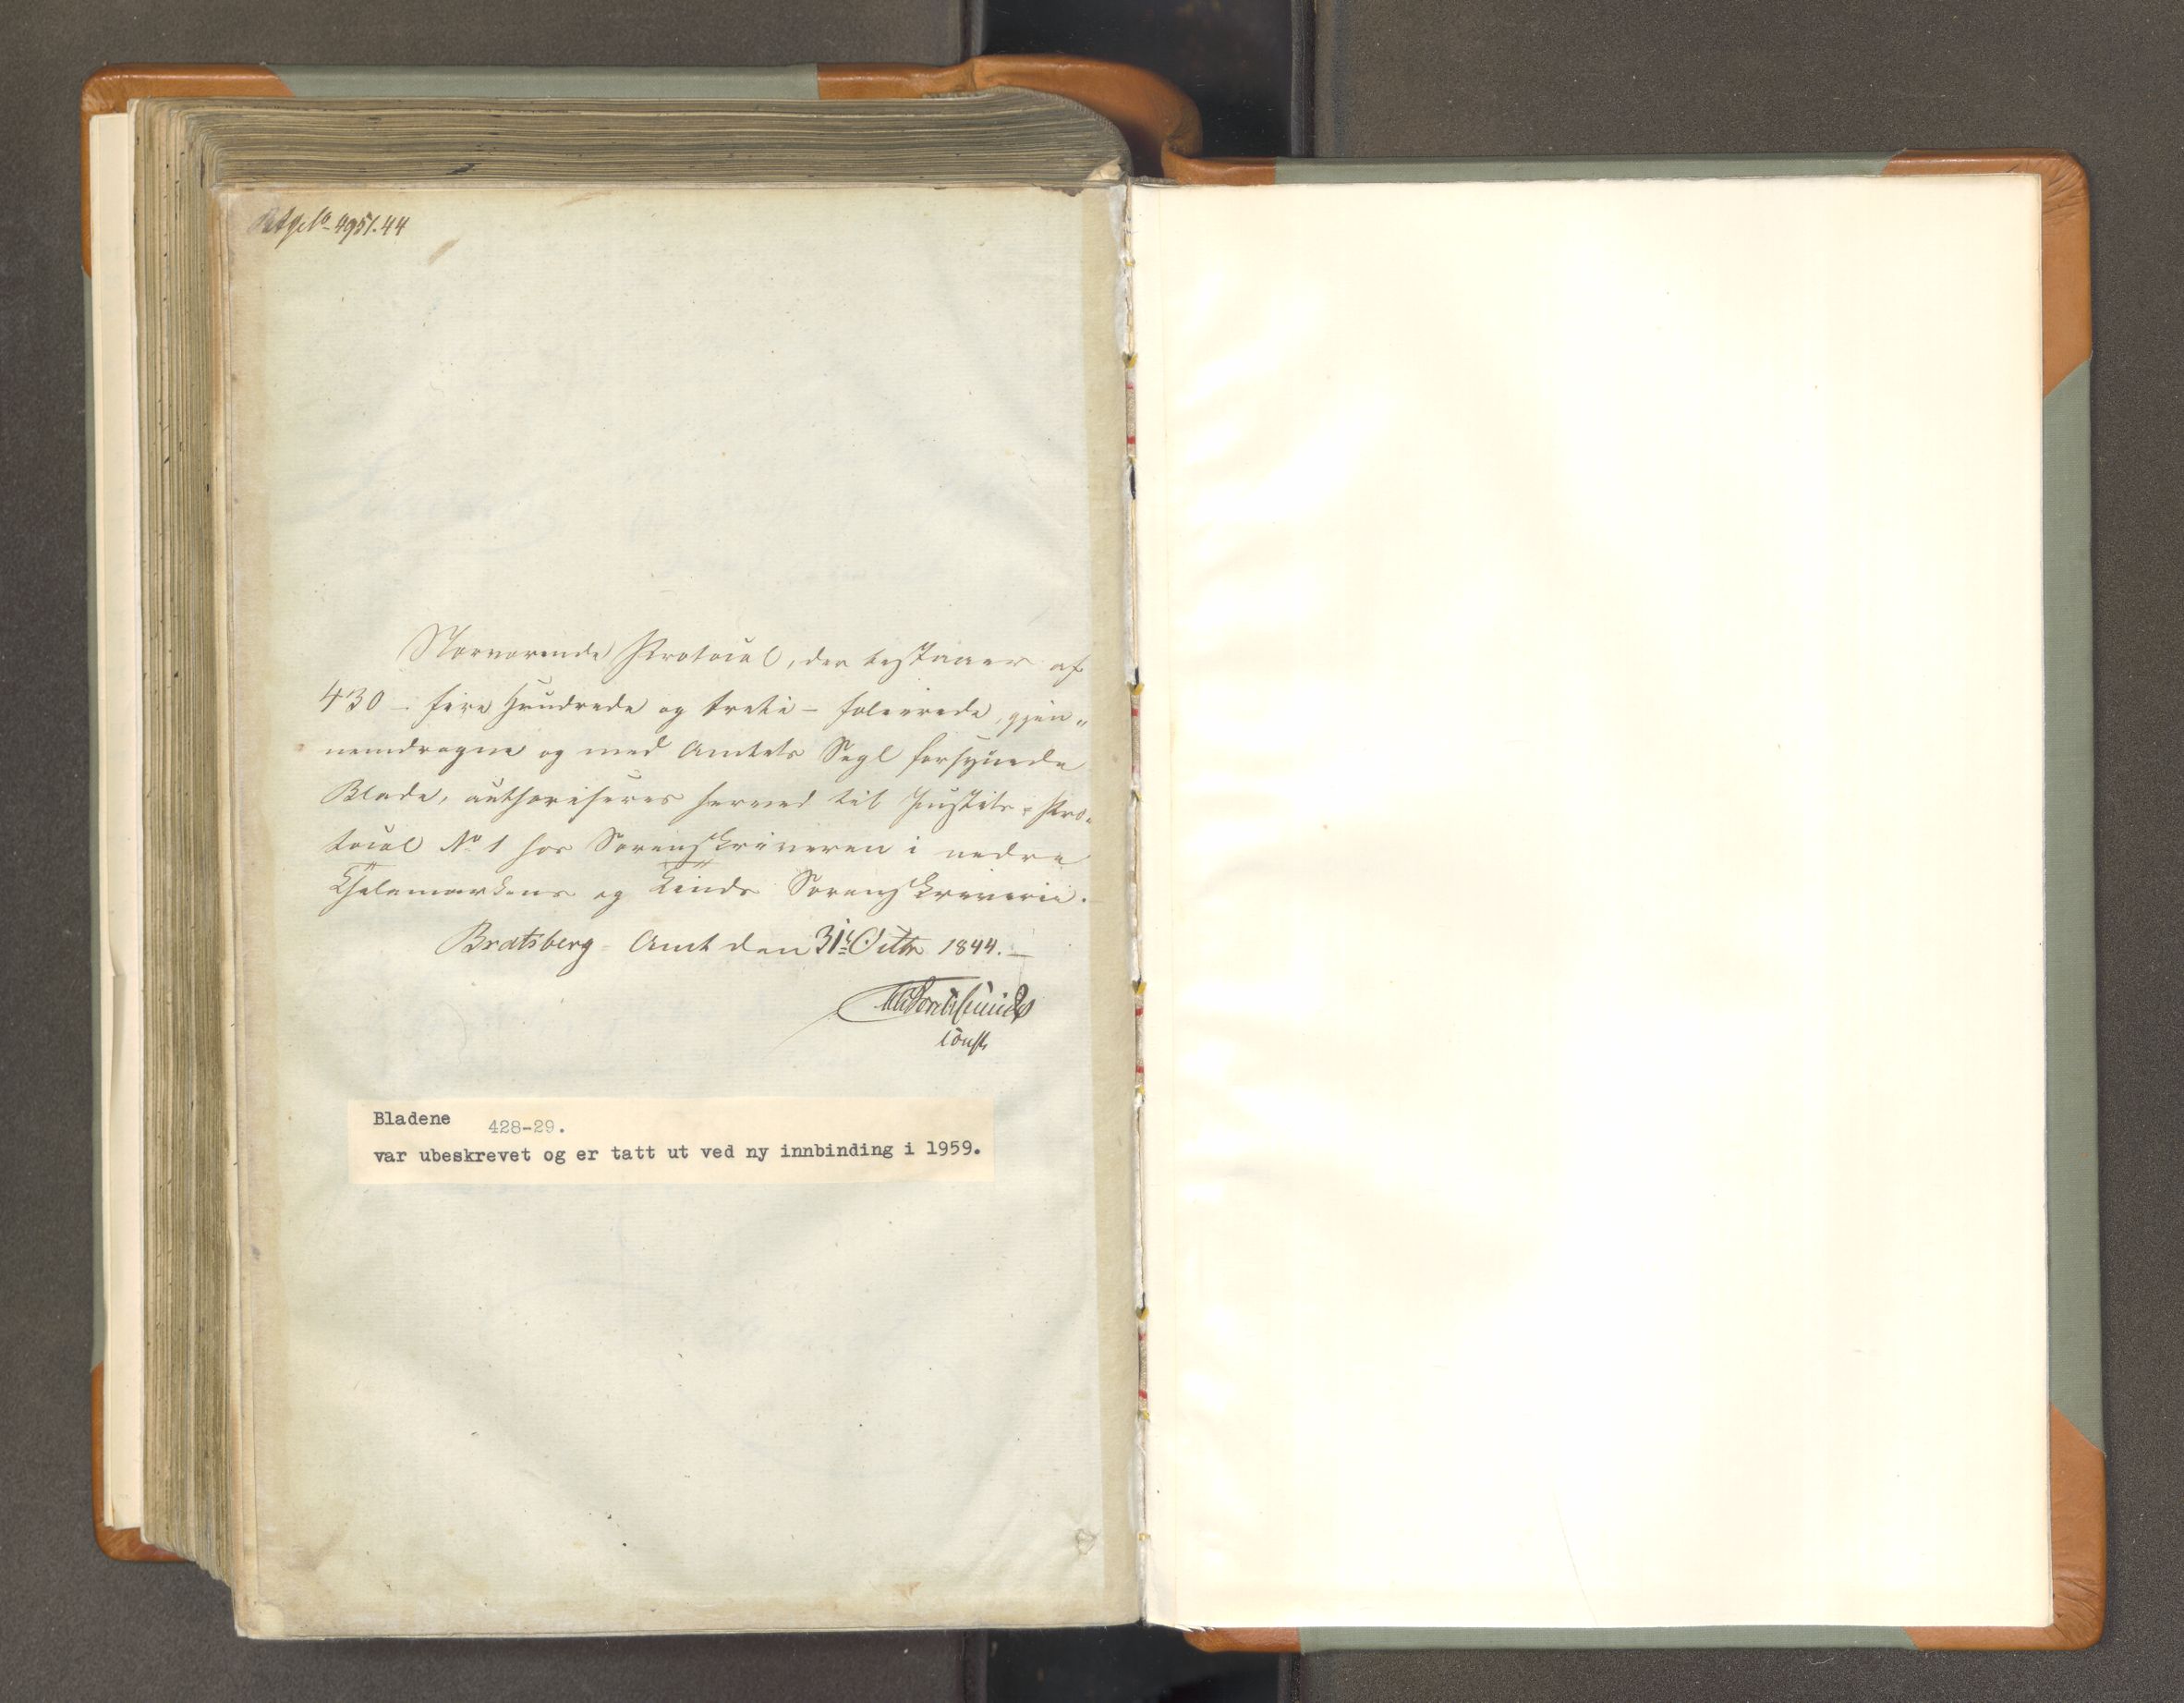 4951.44
Nærværende Protocol, der bestaaer af
430 – fire Hundrede og treti – folierede, gjen„
nemdragne og med Amtets Segl forsynede
Blade, authoriseres herved til Justits-Pro„
tocol No 1 hos Sorenskriveren i nedre
Thelemarkens og Sorenskriverie.
Bratsberg Amt den 31te Octbr 1844. –
const.
Bladene 428-29.
var ubeskrevet og er tatt ut ved ny innbinding i 1959.